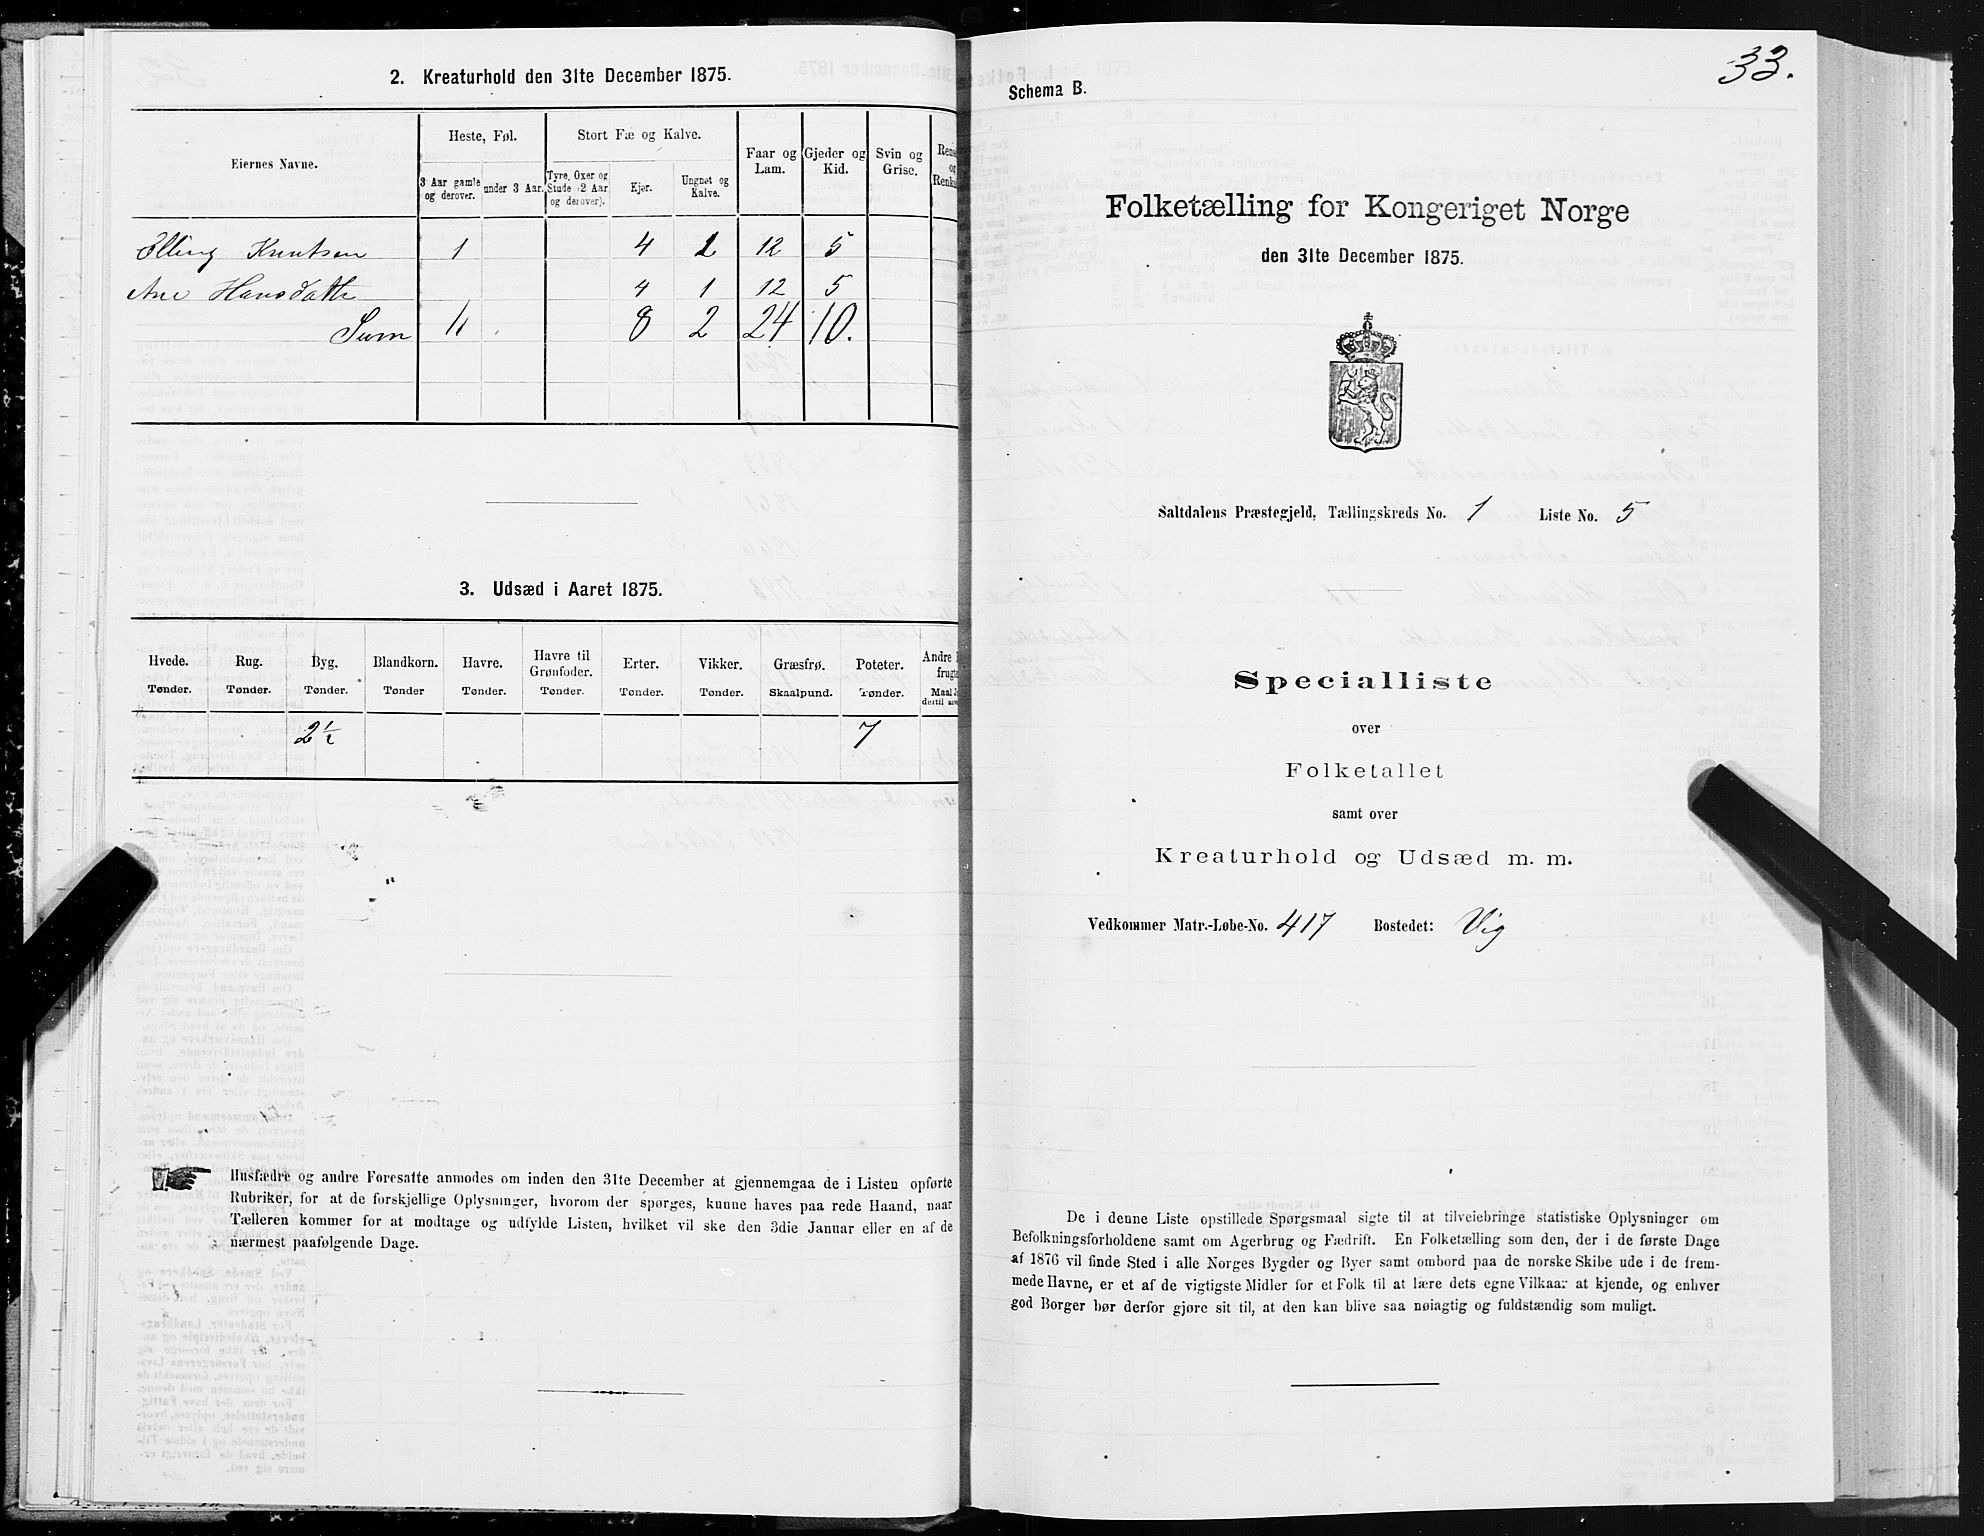 2. Kreaturhold den 31te December 1875.
Eiernes Navne.
Heste, Føl.
Stort Fæ og Kalve.
Faar og Lam.
Gjeder og Kid.
Svin og Grise.
3 Aar gamle og derover.
under 3 Aar.
Tyre, Oxer og Stude (2 Aar og derover).
Kjør.
Ungnøt og Kalve.
Elling Knutsen 1 4 1 12 5
Ane Hansdatter 4 1 12 5
Sum 1 8 2 24 10.
3. Udsæd i Aaret 1875.
Hvede. Rug. Byg. Blandkorn. Havre. Havre til Grønfoder. Erter. Vikker. Græsfrø. Poteter.
Tønder. Tønder. Tønder. Tønder Tønder. Tønder. Tønder. Tønder. Skaalpund. Tønder.
2½ 7
Husfædre og andre Foresatte anmodes om inden den 31te December at gjennemgaa de i Listen opførte
Rubriker, for at de forskjellige Oplysninger, hvorom der spørges, kunne haves paa rede Haand, naar
Tælleren kommer for at modtage og udfylde Listen, hvilket vil ske den 3die Januar eller en af de
nærmest paafølgende Dage.
33.
Schema B.
Folketælling for Kongeriget Norge
den 31te December 1875.
Saltdalens Præstegjeld, Tællingskreds No. 1 Liste No. 5
Specialliste
over
Folketallet
samt over
Kreaturhold og Udsæd m. m.
Vedkommer Matr.-Løbe-No. 417 Bostedet: Vig
De i denne Liste opstillede Spørgsmaal sigte til at tilveiebringe statistiske Oplysninger om
Befolkningsforholdene samt om Agerbrug og Fædrift. En Folketælling som den, der i de første Dage
af 1876 vil finde Sted i alle Norges Bygder og Byer samt ombord paa de norske Skibe ude i de frem-
mede Havne, er et af de vigtigste Midler for et Folk til at lære dets egne Vilkaar at kjende, og enhver
god Borger bør derfor gjøre sit til, at den kan blive saa nøiagtig og fuldstændig som muligt.